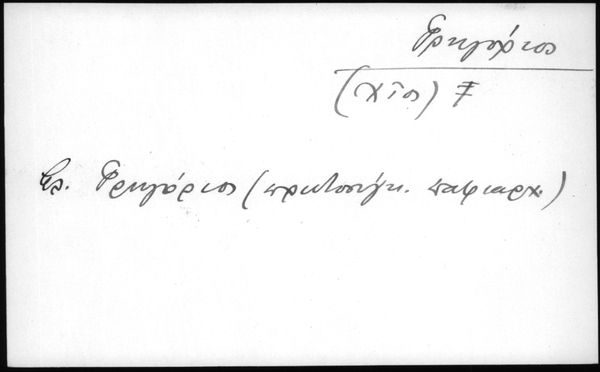 Γρηγόριος
(Χῖος)
βλ. Γρηγόριος (πρωτοσύγκ. πατριαρχ.)